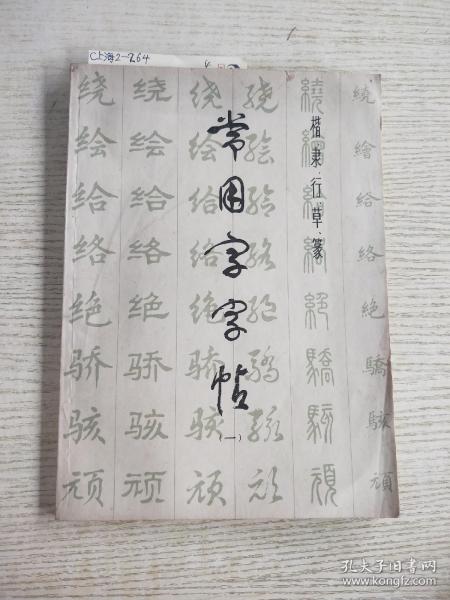 C上海2-264
楷、隶、行、草、篆
常用字字帖
(一)
绕 绕 绕 绕 繞 繞
绘 绘 绘 绘 繪 繪
给 给 给 给 給 給
络 络 络 络 絡 絡
绝 绝 绝 绝 絕 絶
骄 骄 骄 骄 驕 驕
骇 骇 骇 骇 駭 駭
顽 顽 顽 顽 頑 頑
孔夫子旧书网
www.kongfz.com